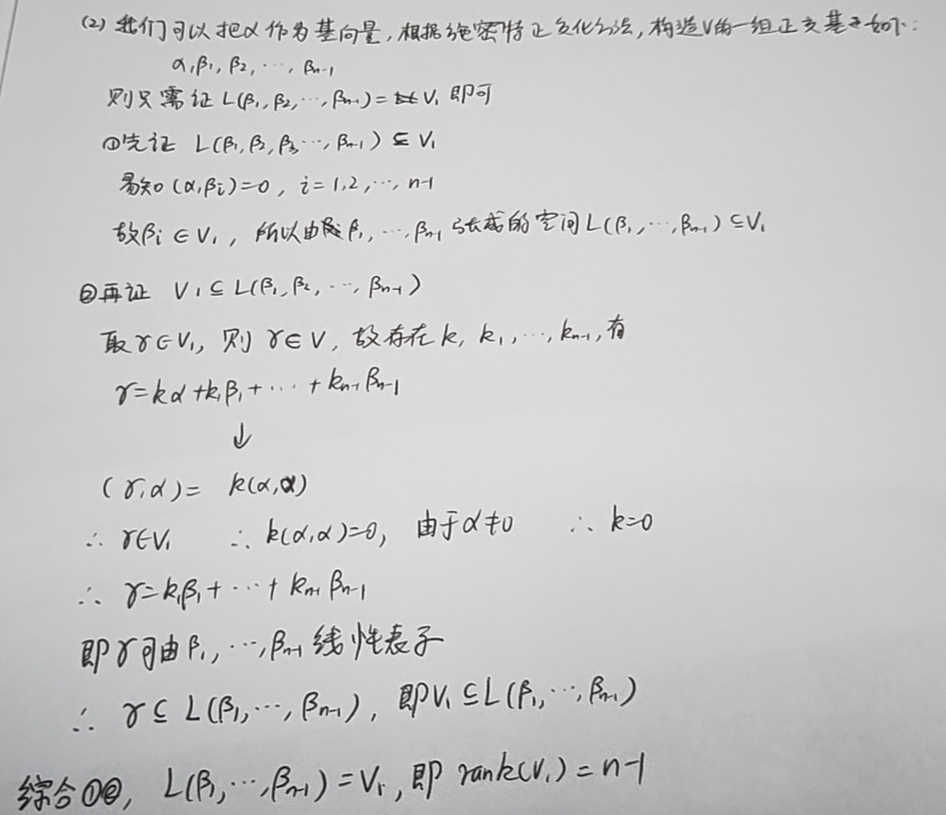 (2) 我们可以把α作为基向量，根据施密特正交化方法，构造V的一组正交基如下：
α, β₁, β₂, ⋯, βₙ₋₁
则只需证 L(β₁, β₂, ⋯, βₙ₋₁) = V₁ 即可
①先证 L(β₁, β₂, β₃ ⋯, βₙ₋₁) ⊆ V₁
易知 (α, βᵢ)=0, i=1,2,⋯, n-1
故βᵢ∈V₁, 所以由β₁, ⋯, βₙ₋₁ 张成的空间L(β₁, ⋯, βₙ₋₁)⊆V₁
②再证 V₁⊆L(β₁, β₂, ⋯, βₙ₋₁)
取γ∈V₁, 则 γ∈V, 故存在k, k₁, ⋯, kₙ₋₁, 有
γ=kα+k₁β₁+⋯+kₙ₋₁βₙ₋₁
↓
(γ,α)= k(α,α)
∴ γ∈V₁ ∴ k(α,α)=0, 由于α≠0 ∴ k=0
∴ γ=k₁β₁+⋯+kₙ₋₁βₙ₋₁
即γ可由β₁, ⋯, βₙ₋₁ 线性表子
∴ γ⊆L(β₁, ⋯, βₙ₋₁), 即V₁⊆L(β₁, ⋯, βₙ₋₁)
综合①②, L(β₁, ⋯, βₙ₋₁)=V₁, 即 rank(V₁)=n-1